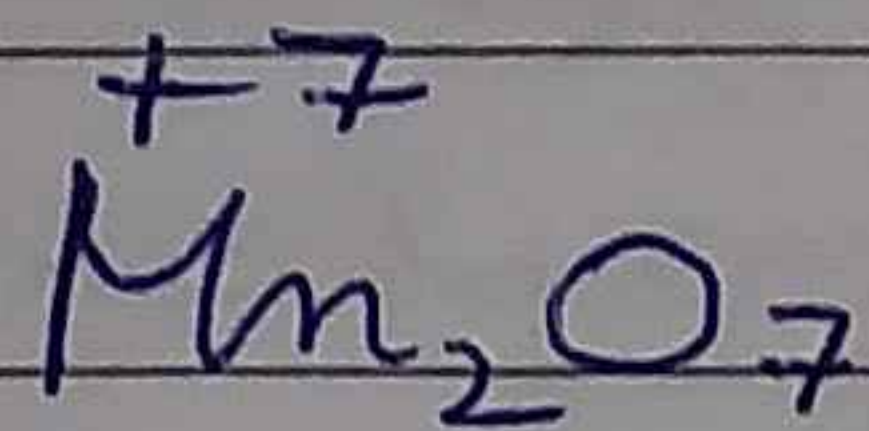 +7
Mn₂O₇